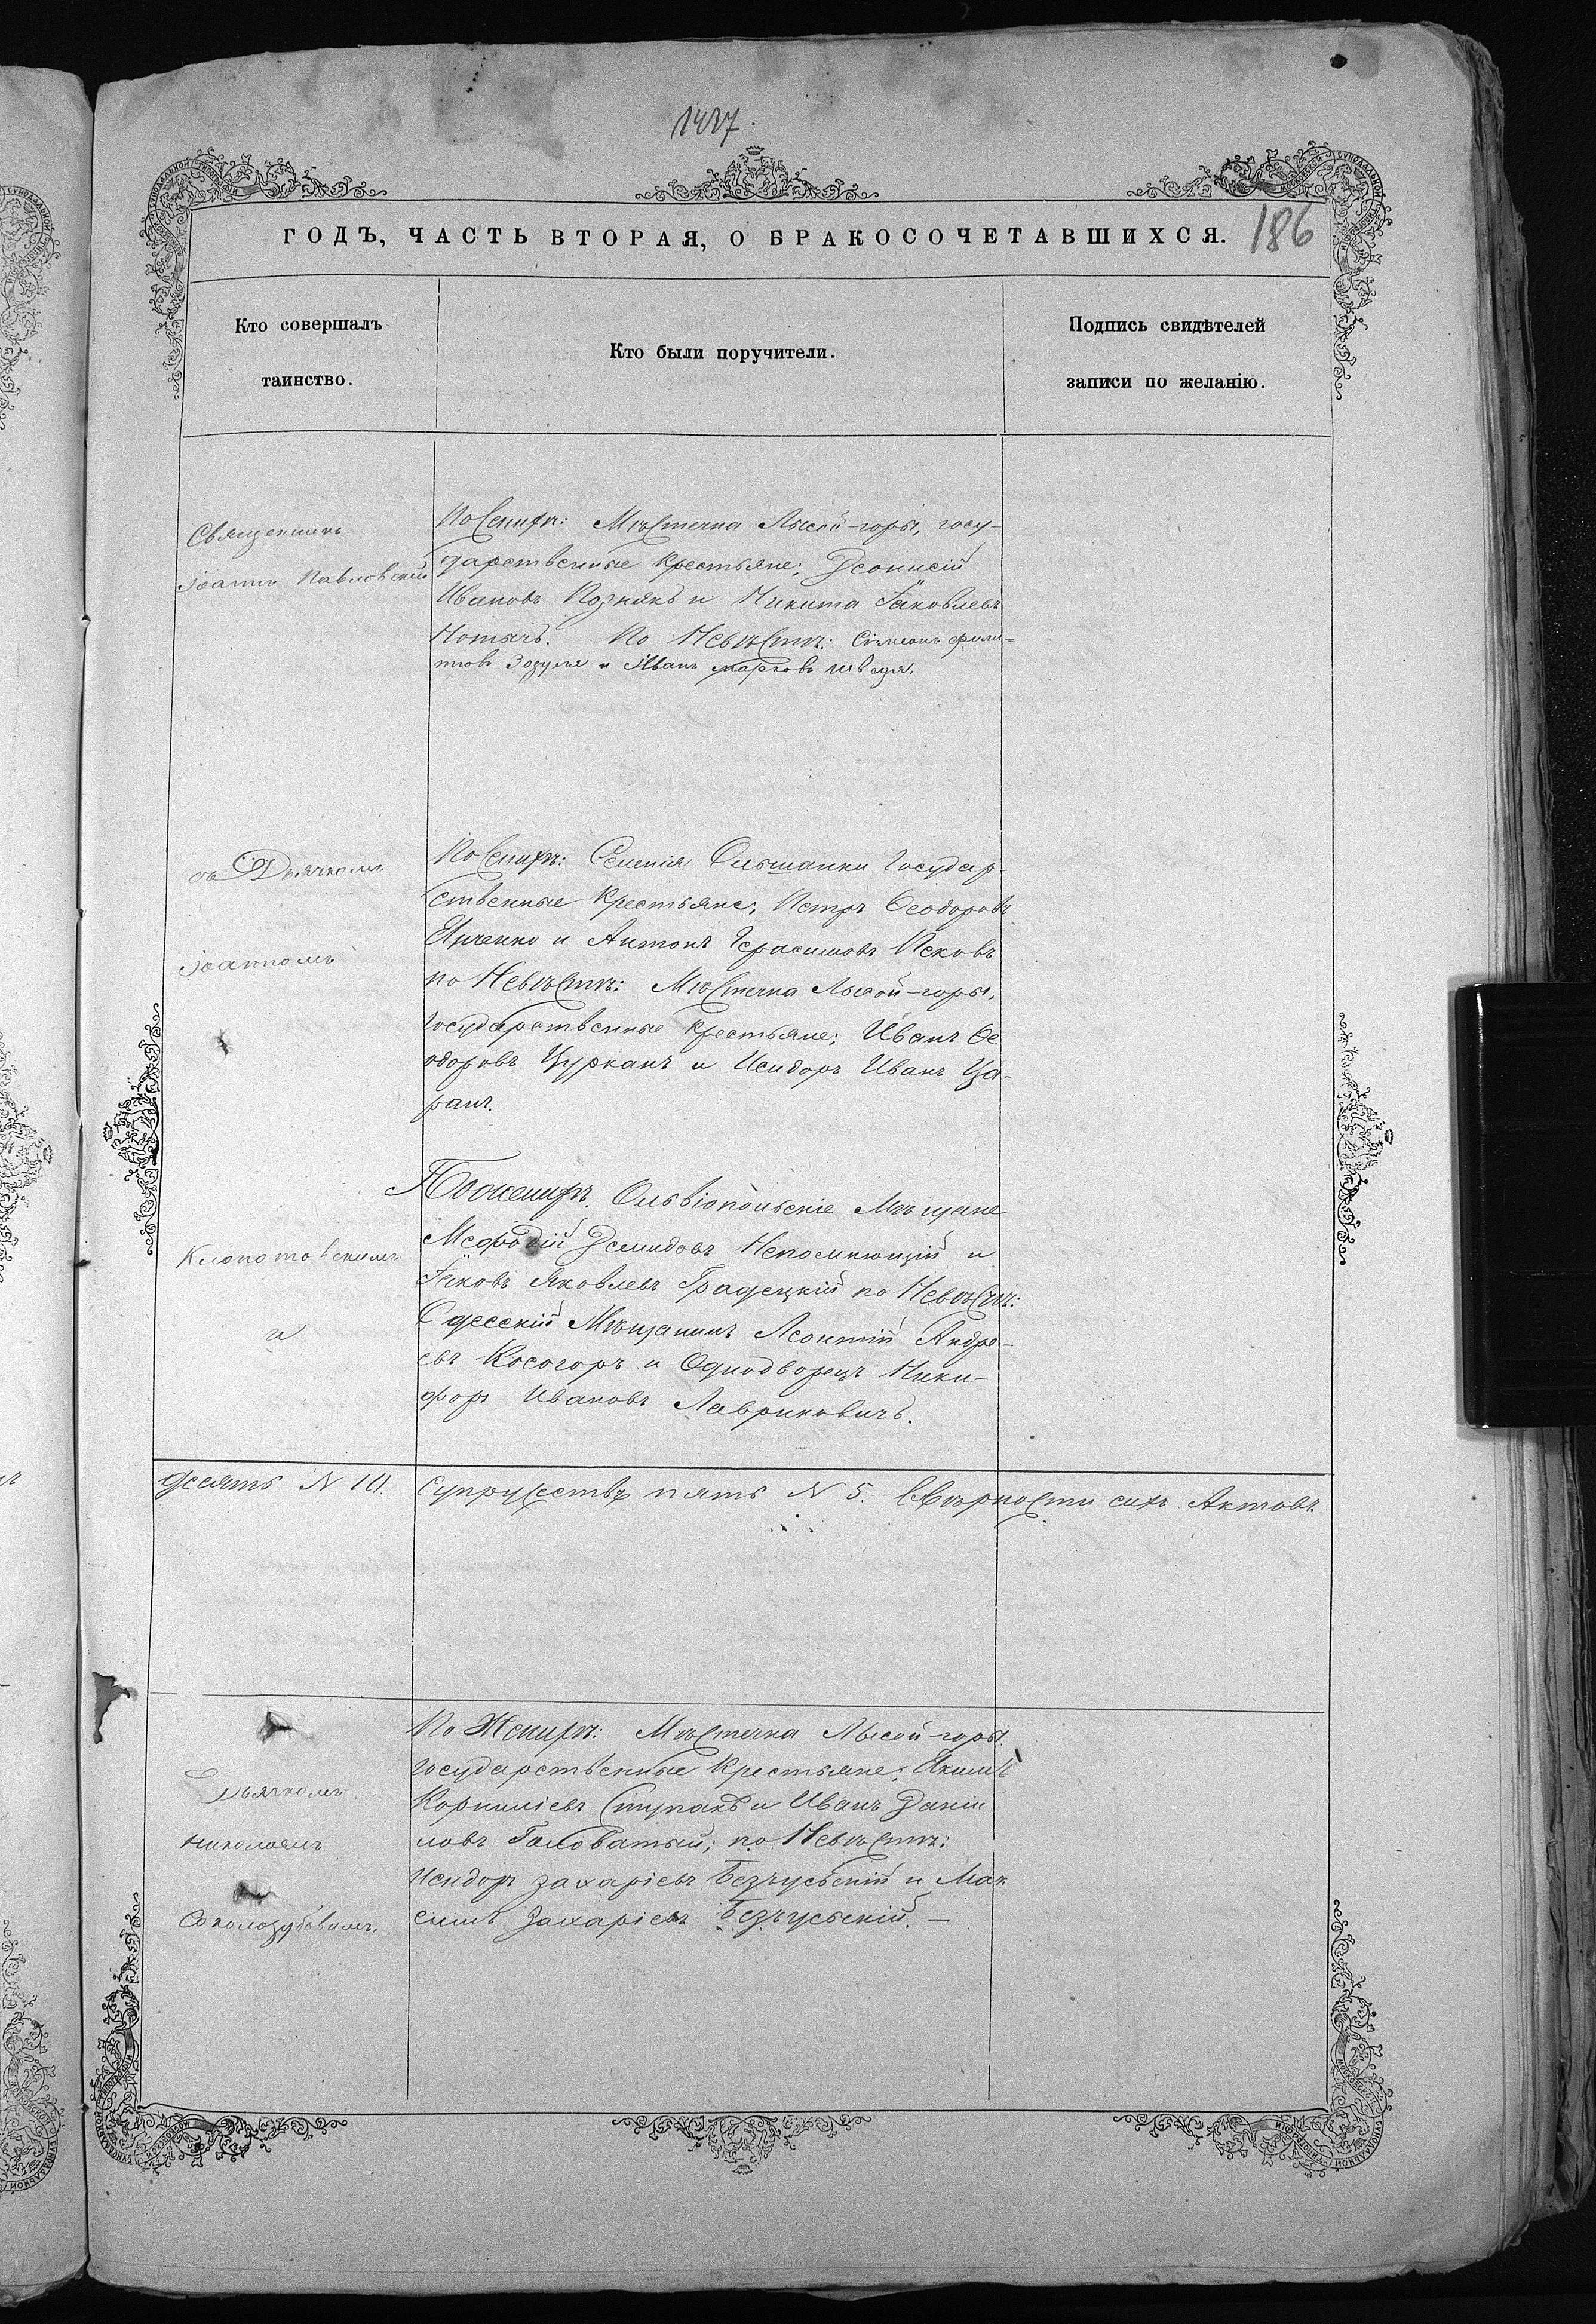 1427.
186
ГОДЪ, ЧАСТЬ ВТОРАЯ, О БРАКОСОЧЕТАВШИХСЯ.
Кто совершалъ
таинство.
Кто были поручители.
Подпись свидѣтелей
записи по желанію.
Священникъ
Іоаннъ Павловскій
По Женихѣ: Мѣстечка Лысой-горы, госу-
дарственные крестьяне; Деонисій
Ивановъ Познякъ и Никита Іаковлевъ
По Невѣстѣ: Сѵмеонъ Фили-
Зозуля и Иванъ Марковъ Швецъ.
съ Дьячкомъ
Іоанномъ
По Женихѣ: Селенія Ольшанки Государ-
ственные крестьяне; Петръ Ѳеодоровъ
и Антонъ Герасимовъ Псковъ
по Невѣстѣ: Мѣстечка Лысой-горы,
государственные крестьяне; Иванъ Ѳе
одоровъ Цурканъ и Исидоръ Иванъ Ца-
ранъ.
Клопотовскимъ
и
По женихѣ. Ольвіопольскіе Мѣщане
Меѳодій Демидовъ Непомнющій и
Іаковъ Яковлевъ Градецкій по Невѣстѣ:
Одесскій Мѣщанинъ Леонтій Андре-
евъ Косогоръ и Однодворецъ Ники-
форъ Ивановъ Лавриновичъ.
десять N 10. Супружествъ пять N 5. Вѣрности сихъ Актовъ
Дьячкомъ
Николаемъ
Соколозубовимъ.
По Женихѣ: Мѣстечка Лысой-горы
государственные крестьяне; Якимъ
Корниліевъ Ступакъ и Иванъ Даніи
ловъ Головатый; по Невѣстѣ:
Исидоръ Захаріевъ Безъусьскій и Мак
симъ Захаріевъ Безъусьскій. —